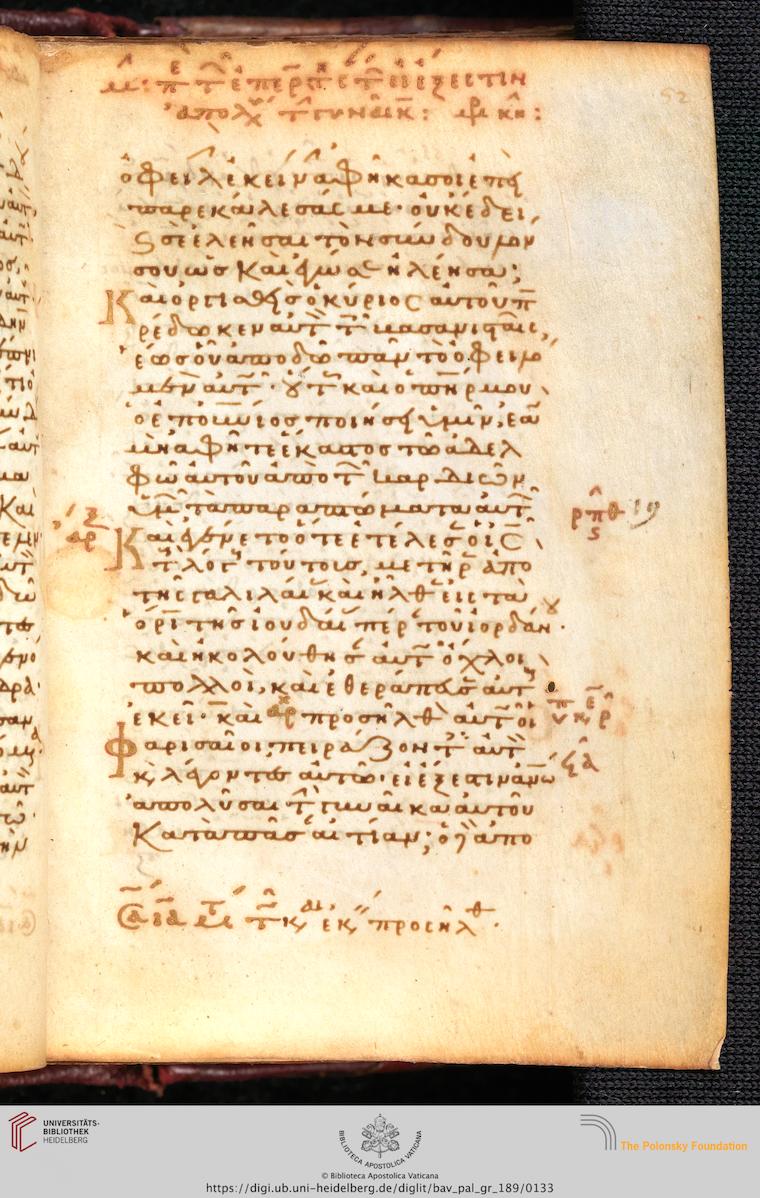 52
ἀπολ τ γυναικ:
ὀφειλὴ ἐκείνα ἀφῆκα σοι ἐπεὶ
παρεκάλεσάς με· οὐκ ἔδει
σε ἐλεῆσαι τὸν σύνδουλόν
σου ὡς καὶ ἐγώ σε ἠλέησα;
Καὶ ὀργισθεὶς ὁ κύριος αὐτοῦ π
ρέδωκεν αὐτ τ βασανισταῖς,
ἕως οὗ ἀποδῶ πᾶν τὸ ὀφειλό
μενον αὐτ· οὕτ καὶ ὁ πηρ μου
ὁ ἐπουράνιος ποιήσει ὑμῖν, ἐὰν
μὴ ἀφῆτε ἕκαστος τῶ ἀδελ
φῶ αὐτοῦ ἀπὸ τ καρδιῶν
ὑμ τὰ παραπτώματα αὐτ
Καὶ ἐγένετο ὅτε ἐτέλεσ ὁ ις
τ λόγ τούτους, μετῆρ ἀπὸ
τῆς γαλιλαί καὶ ἦλθ εἰς τὰ
ὅρι τῆς ἰουδαί πέρ τοῦ ἰορδάν·
καὶ ἠκολούθησ αὐτ ὄχλοι
πολλοί, καὶ ἐθεράπευσ αὐτ
ἐκεῖ· καὶ προσῆλθ αὐτ οἱ
Φαρισαῖοι πειράζοντ αὐτ
κ, λέγοντες αὐτῶ· εἰ ἔξεστιν ἀνω
ἀπολῦσαι τ γυναῖκα αὐτοῦ
Κατὰ πᾶσ αἰτίαν; ὁ δὲ ἀπο
19
UNIVERSITÄTS-
BIBLIOTHEK
HEIDELBERG
BIBLIOTECA APOSTOLICA VATICANA
The Polonsky Foundation
© Biblioteca Apostolica Vaticana
https://digi.ub.uni-heidelberg.de/diglit/bav_pal_gr_189/0133